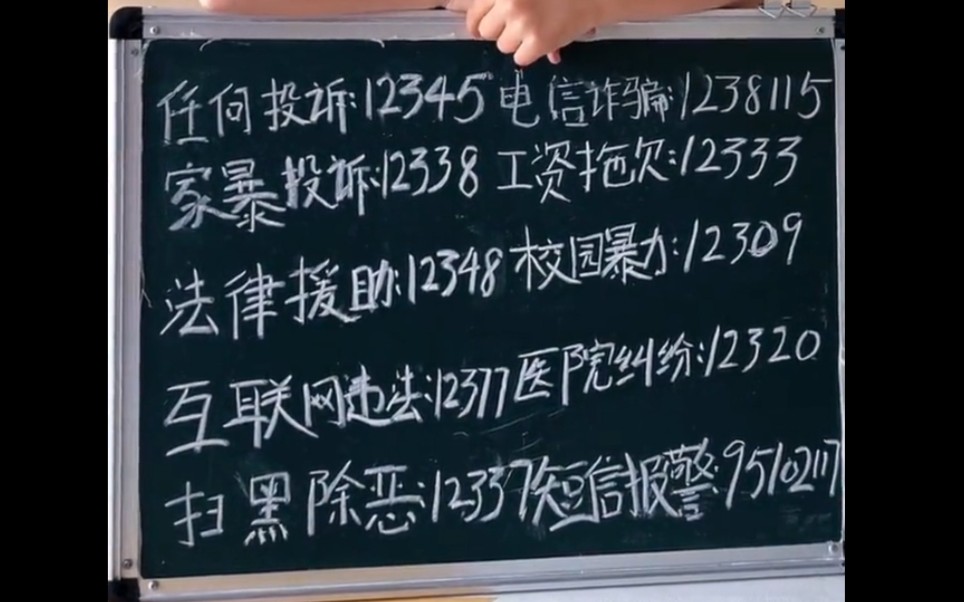 任何投诉:12345 电信诈骗:1238115
家暴投诉:12338 工资拖欠:12333
法律援助:12348 校园暴力:12309
互联网违法:12377 医院纠纷:12320
扫黑除恶:12337 短信报警:95102117